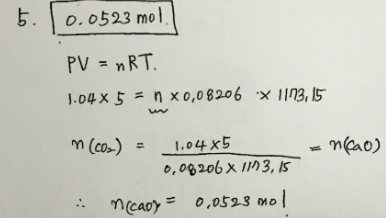 5. 0.0523 mol.
PV = nRT.
1.04 x 5 = n x 0,08206 x 1173,15
n(CO₂) = 1.04 x 5 / 0,08206 x 1173,15 = n(CaO)
∴ n(CaO) = 0,0523 mol